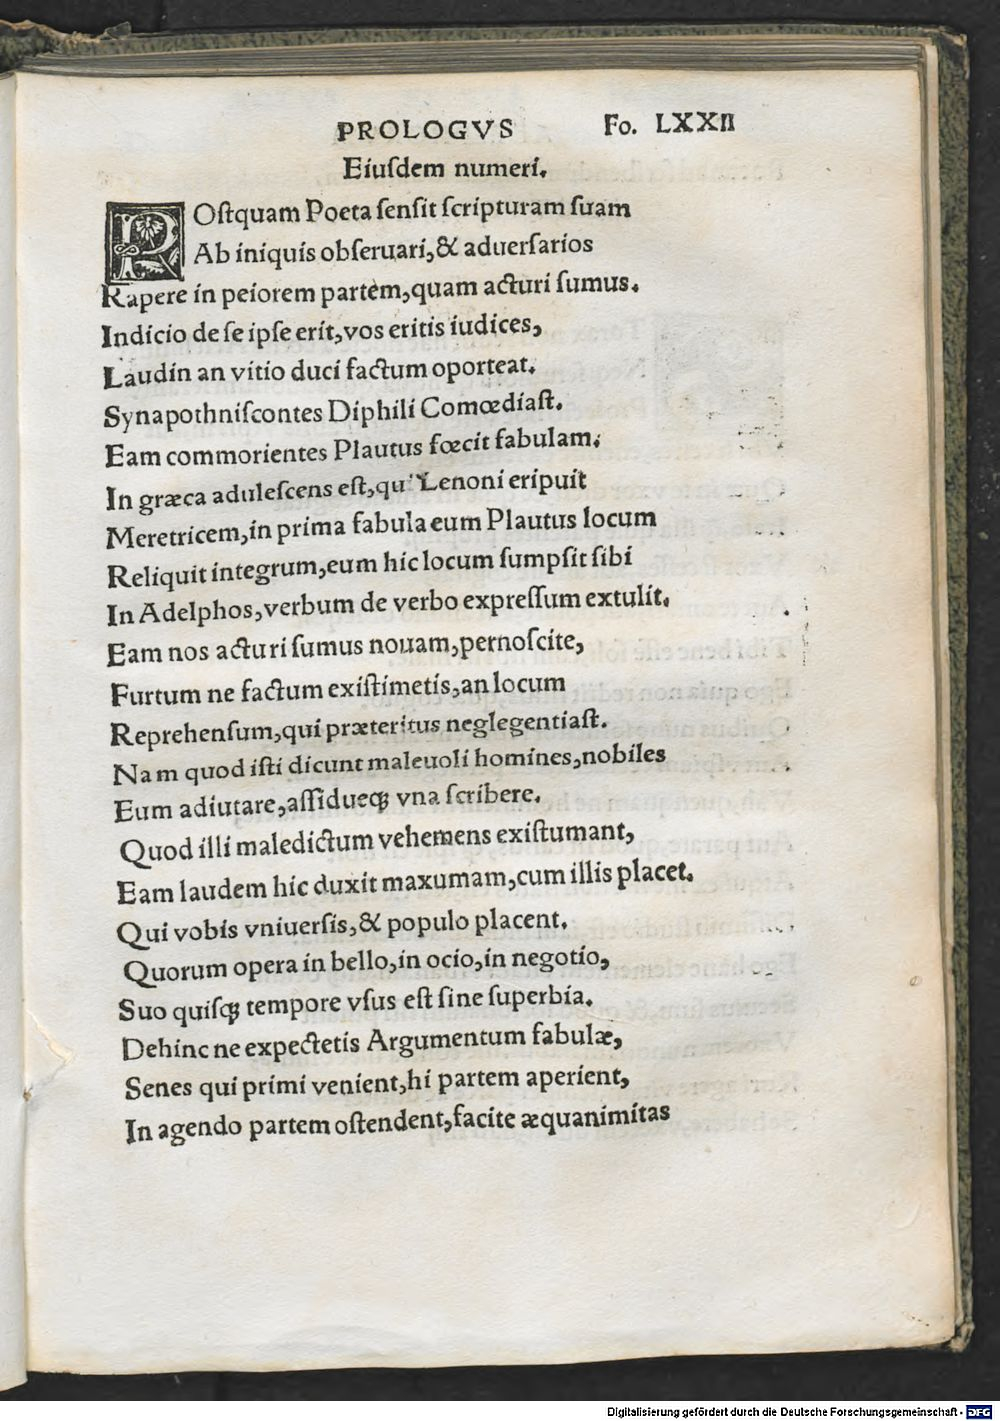 PROLOGVS Fo. LXXII
Eiuſdem numeri.
POſtquam Poeta ſenſit ſcripturam ſuam
Ab iniquis obſeruari,& aduerſarios
Rapere in peiorem partem,quam acturi ſumus.
Indicio de ſe ipſe erit,vos eritis iudices,
Laudin an vitio duci factum oporteat.
Synapothniſcontes Diphili Comœdiaſt.
Eam commorientes Plautus fœcit fabulam.
In græca aduleſcens eſt,qui Lenoni eripuit
Meretricem,in prima fabula eum Plautus locum
Reliquit integrum,eum hic locum ſumpſit ſibi
In Adelphos,verbum de verbo expreſſum extulit.
Eam nos acturi ſumus nouam,pernoſcite,
Furtum ne factum exiſtimetis,an locum
Reprehenſum,qui præteritus neglegentiaſt.
Nam quod iſti dicunt maleuoli homines,nobiles
Eum adiutare,aſſidueqꝫ vna ſcribere.
Quod illi maledictum vehemens exiſtumant,
Eam laudem hic duxit maxumam,cum illis placet.
Qui vobis vniuerſis,& populo placent.
Quorum opera in bello,in ocio,in negotio,
Suo quiſqꝫ tempore vſus eſt ſine ſuperbia.
Dehinc ne expectetis Argumentum fabulæ,
Senes qui primi venient,hi partem aperient,
In agendo partem oſtendent,facite æquanimitas
Digitalisierung gefördert durch die Deutsche Forschungsgemeinschaft - DFG